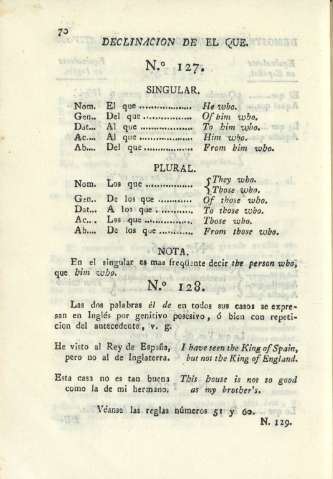 70
DECLINACION DE EL QUE.
N.º 127.
SINGULAR.
Nom. El que .................. He who.
Gen.. Del que ................. Of him who.
Dat... Al que .................. To him who.
Ac.... Al que .................. Him who.
Ab.... Del que ................. From him who.
PLURAL.
Nom. Los que ............... { They who.
Those who.
Gen.. De los que ............ Of those who.
Dat... A los que ............. To those who.
Ac.... Los que ................ Those who.
Ab.... De los que ............ From those who.
NOTA.
En el singular es mas freqüente decir the person who,
que him who.
N.º 128.
Las dos palabras él de en todos sus casos se expre-
san en Inglés por genitivo posesivo, ó bien con repeti-
cion del antecedente, v. g.
He visto al Rey de España, I have seen the King of Spain,
pero no al de Inglaterra. but not the King of England.
Esta casa no es tan buena This house is not so good
como la de mi hermano. as my brother's.
Véanse las reglas números 51 y 60.
N. 129.